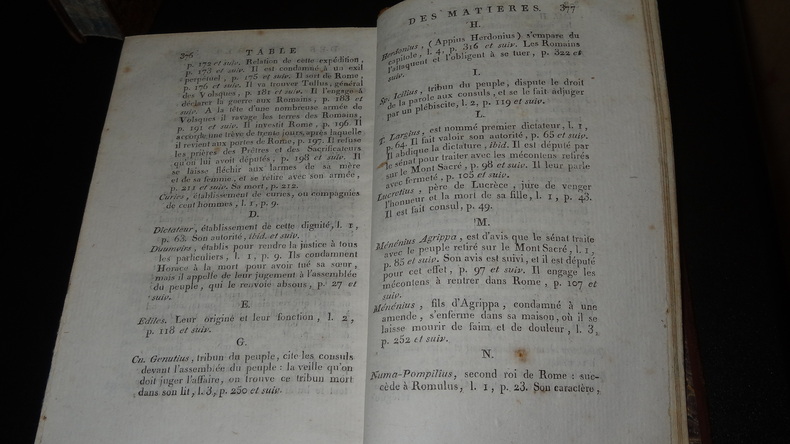 376 TABLE
p. 172 et suiv. Relation de cette expédition,
p. 173 et suiv. Il est condamné à un exil
perpétuel, p. 175 et suiv. Il sort de Rome,
p. 176 et suiv. Il va trouver Tullus, général
des Volsques, p. 181 et suiv. Il l'engage à
déclarer la guerre aux Romains, p. 183 et
suiv. A la tête d'une nombreuse armée de
Volsques il ravage les terres des Romains,
p. 191 et suiv. Il investit Rome, p. 196. Il
accorde une trève de trente jours, après laquelle
il revient aux portes de Rome, p. 197. Il refuse
les prières des Prêtres et des Sacrificateurs
qu'on lui avoit députés, p. 198 et suiv. Il
se laisse fléchir aux larmes de sa mère
et de sa femme, et se retire avec son armée,
p. 211 et suiv. Sa mort, p. 212.
Curies, établissement de curies, ou compagnies
de cent hommes, l. 1, p. 9.
D.
Dictateur, établissement de cette dignité, l. 1,
p. 63. Son autorité, ibid. et suiv.
Duumvirs, établis pour rendre la justice à tous
les particuliers, l. 1, p. 9. Ils condamnent
Horace à la mort pour avoir tué sa sœur,
mais il appelle de leur jugement à l'assemblée
du peuple, qui le renvoie absous, p. 27 et
suiv.
E.
Ediles. Leur origine et leur fonction, l. 2,
p. 118 et suiv.
G.
Cn. Genutius, tribun du peuple, cite les consuls
devant l'assemblée du peuple : la veille qu'on
doit juger l'affaire, on trouve ce tribun mort
dans son lit, l. 3, p. 250 et suiv.
DES MATIERES. 377
H.
Herdonius, (Appius Herdonius) s'empare du
capitole, l. 4, p. 316 et suiv. Les Romains
l'attaquent et l'obligent à se tuer, p. 322 et
suiv.
I.
Sp. Icilius, tribun du peuple, dispute le droit
de la parole aux consuls, et se le fait adjuger
par un plébiscite, l. 2, p. 119 et suiv.
L.
T. Largius, est nommé premier dictateur, l. 1,
p. 64. Il fait valoir son autorité, p. 65 et suiv.
Il abdique la dictature, ibid. Il est député par
le sénat pour traiter avec les mécontens retirés
sur le Mont Sacré, p. 98 et suiv. Il leur parle
avec fermeté, p. 105 et suiv.
Lucretius, père de Lucrèce, jure de venger
l'honneur et la mort de sa fille, l. 1, p. 43.
Il est fait consul, p. 49.
M.
Ménénius Agrippa, est d'avis que le sénat traite
avec le peuple retiré sur le Mont Sacré, l. 1,
p. 85 et suiv. Son avis est suivi, et il est député
pour cet effet, p. 97 et suiv. Il engage les
mécontens à rentrer dans Rome, p. 107 et
suiv.
Ménénius, fils d'Agrippa, condamné à une
amende, s'enferme dans sa maison, où il se
laisse mourir de faim et de douleur, l. 3,
p. 252 et suiv.
N.
Numa-Pompilius, second roi de Rome : suc-
cède à Romulus, l. 1, p. 23. Son caractère,